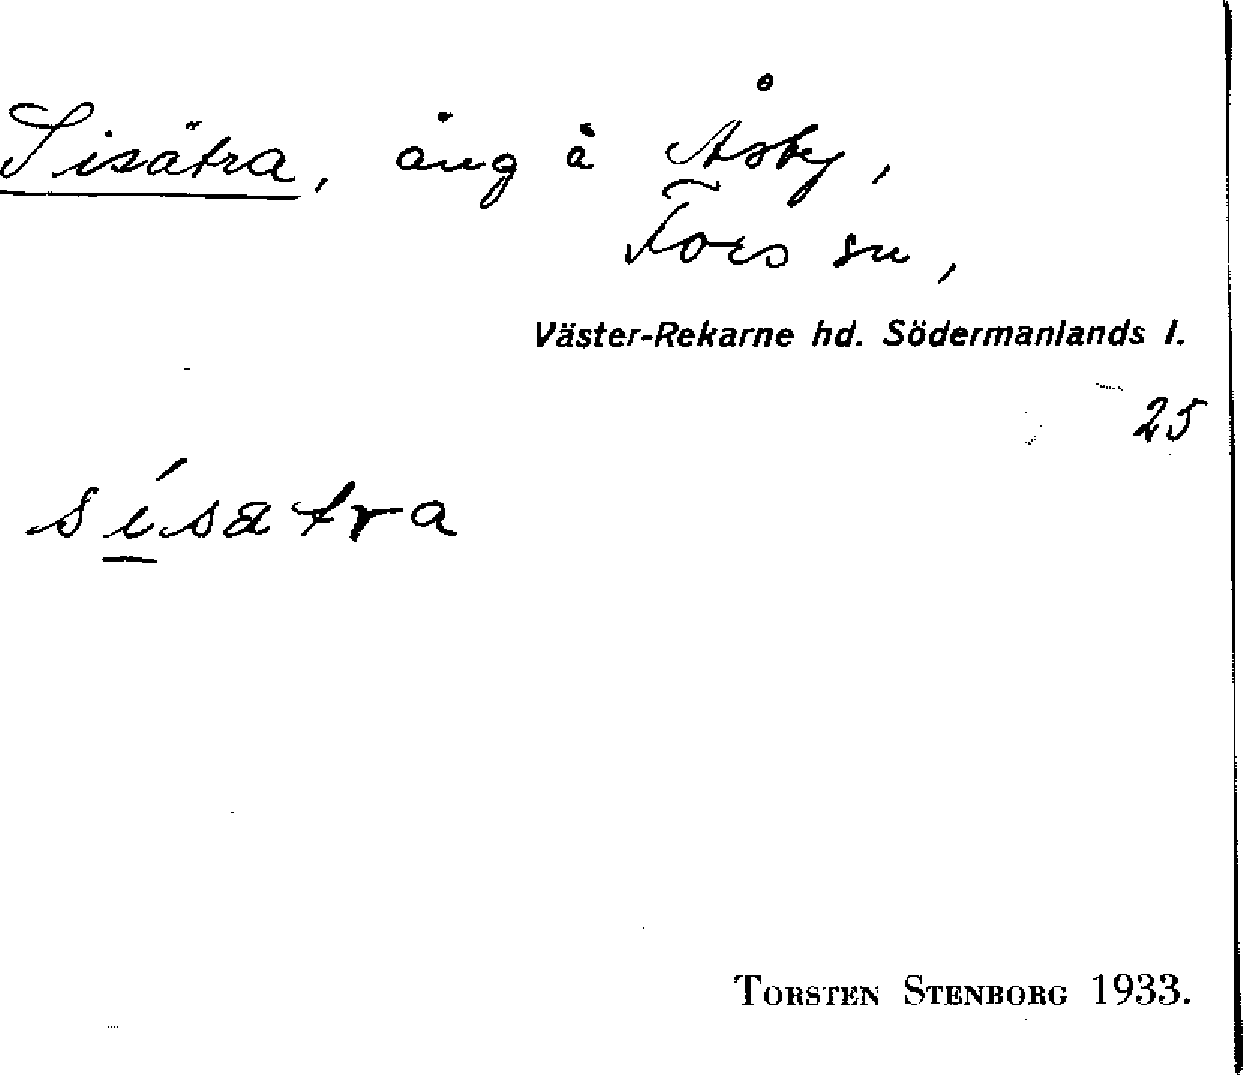 Sisätra, äng å Åsby,
Tors sn,
Väster-Rekarne hd. Södermanlands l.
25
sísätra
TORSTEN STENBORG 1933.